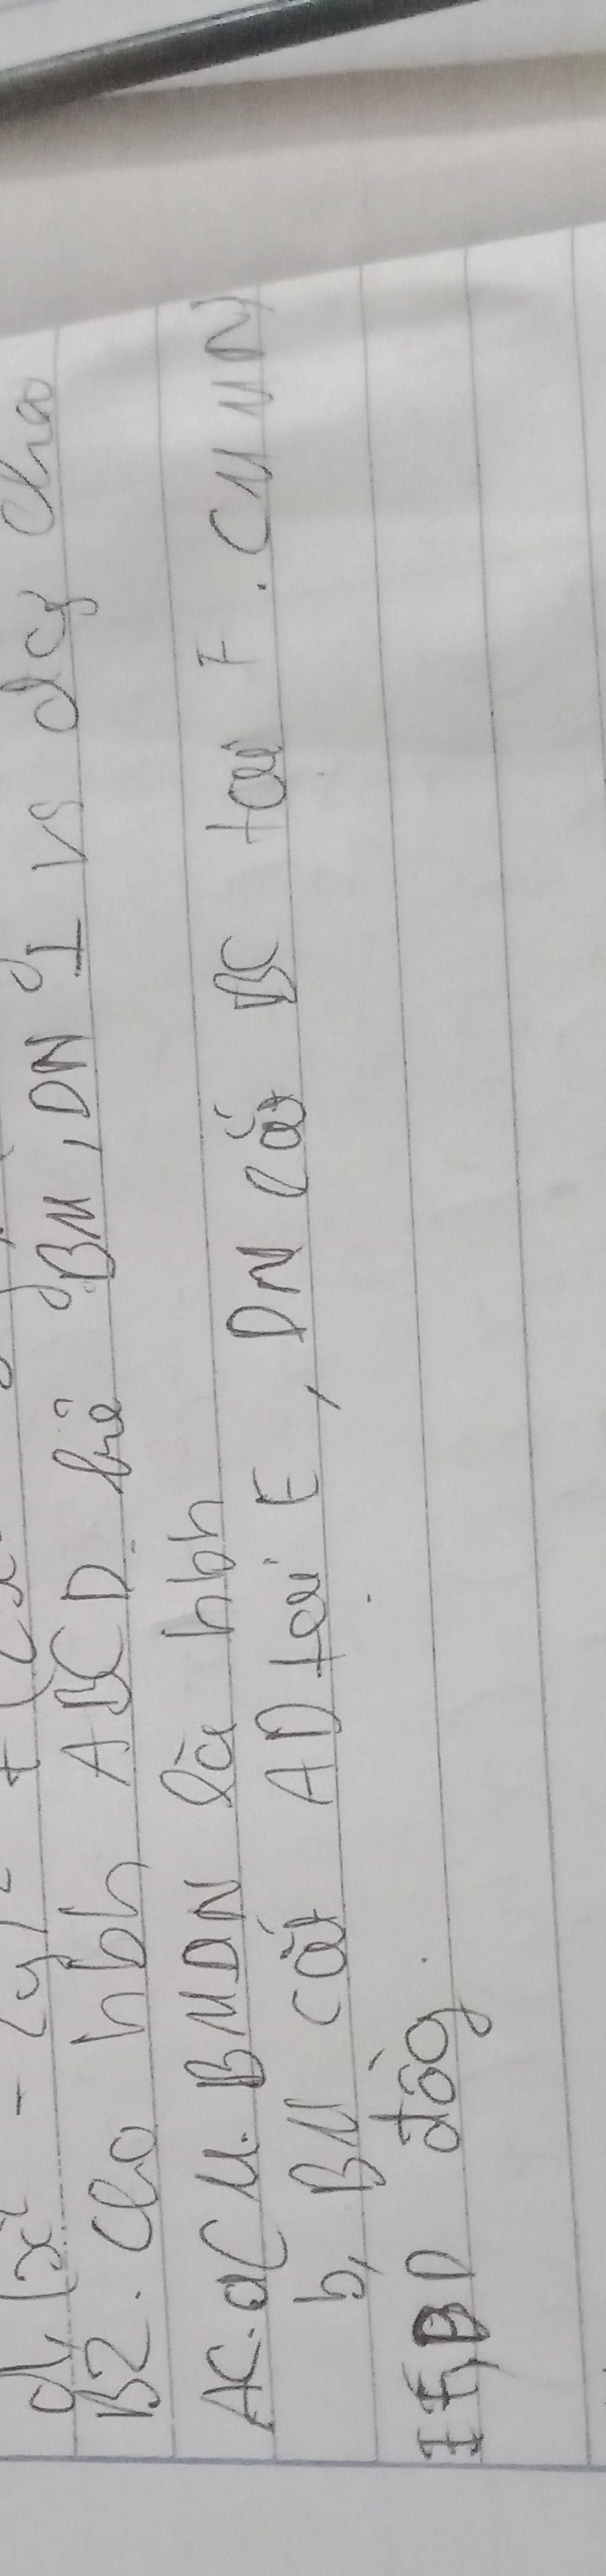 d, (x² - 2y)²
B2. Cho hbh ABCD. kẻ BM, DN ⊥ vs đg chéo
AC. a, CM. BMDN là hbh
b, BM cắt AD tại E, DN cắt BC tại F. CM MN,
IF, BD đồg